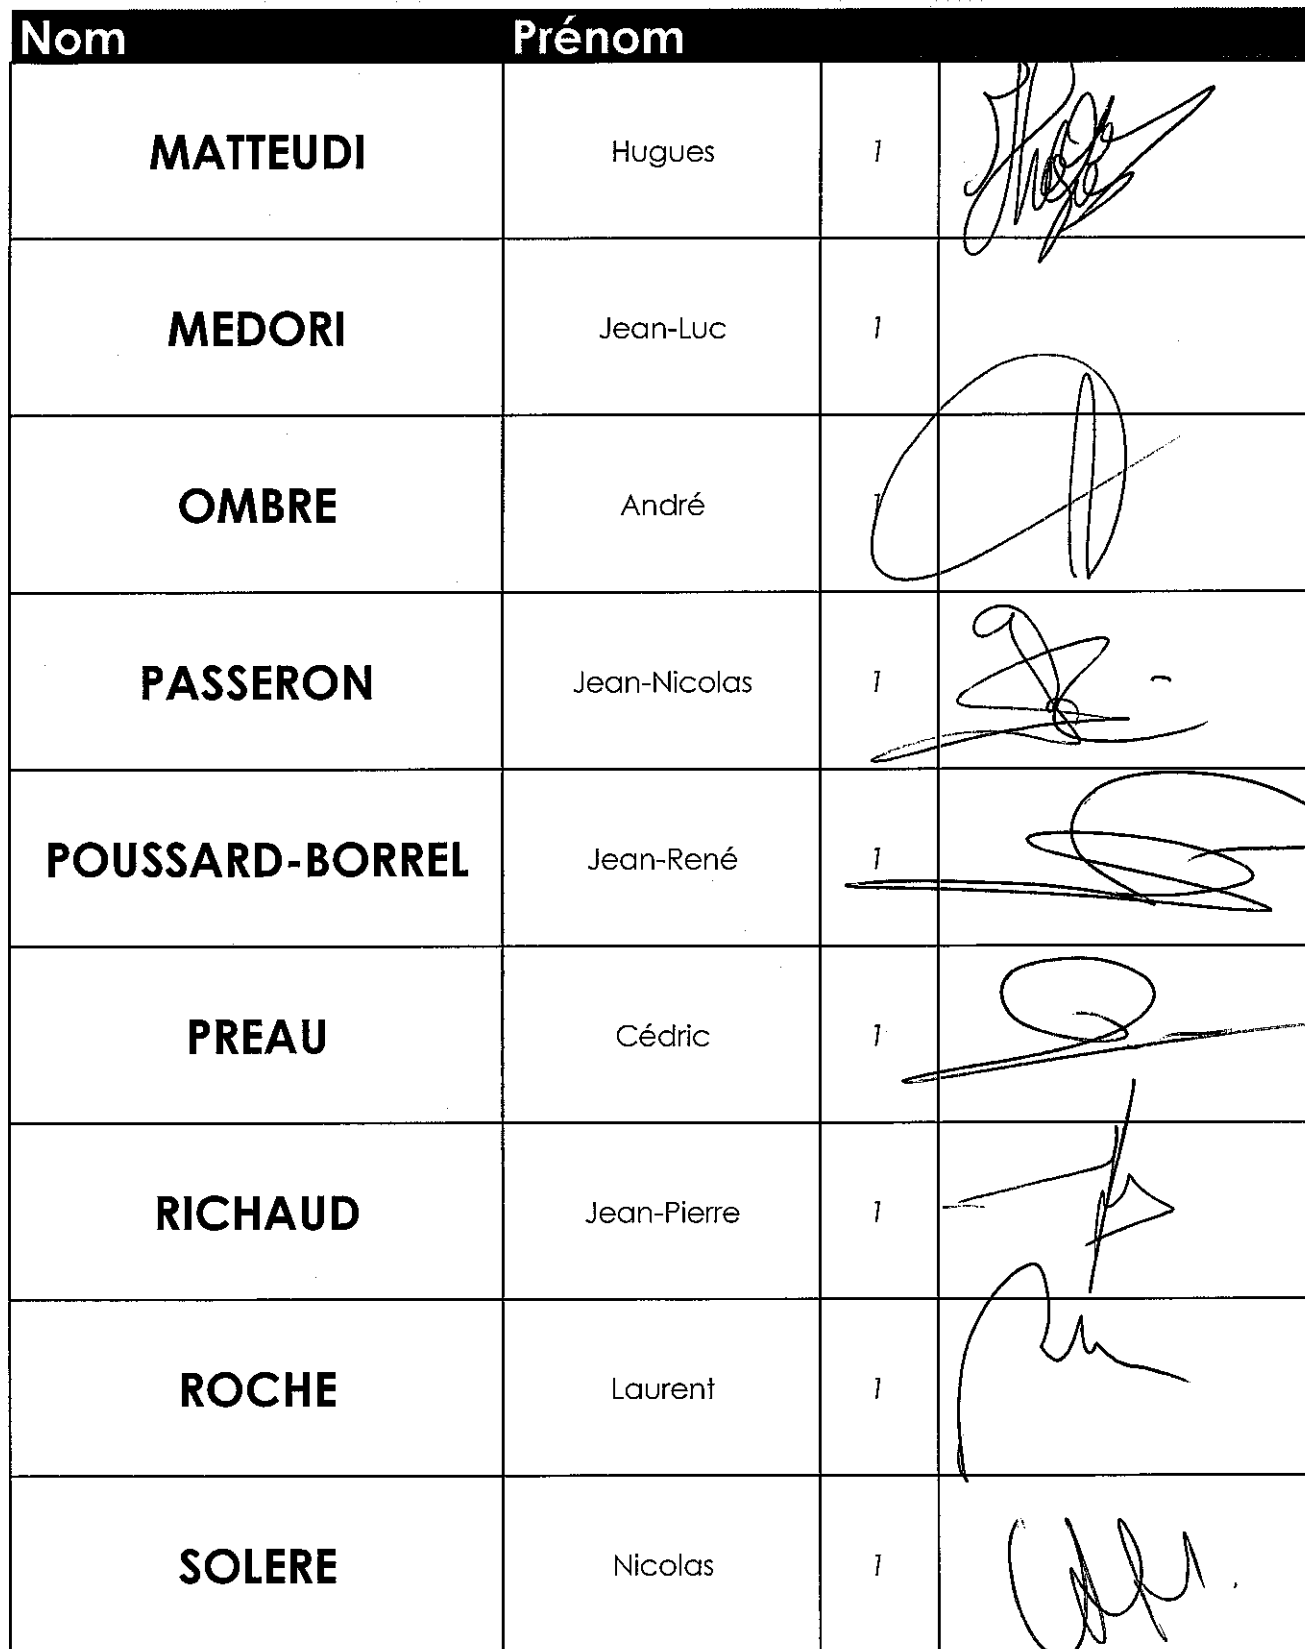 Nom Prénom
MATTEUDI Hugues 1
MEDORI Jean-Luc 1
OMBRE André 1
PASSERON Jean-Nicolas 1
POUSSARD-BORREL Jean-René 1
PREAU Cédric 1
RICHAUD Jean-Pierre 1
ROCHE Laurent 1
SOLERE Nicolas 1